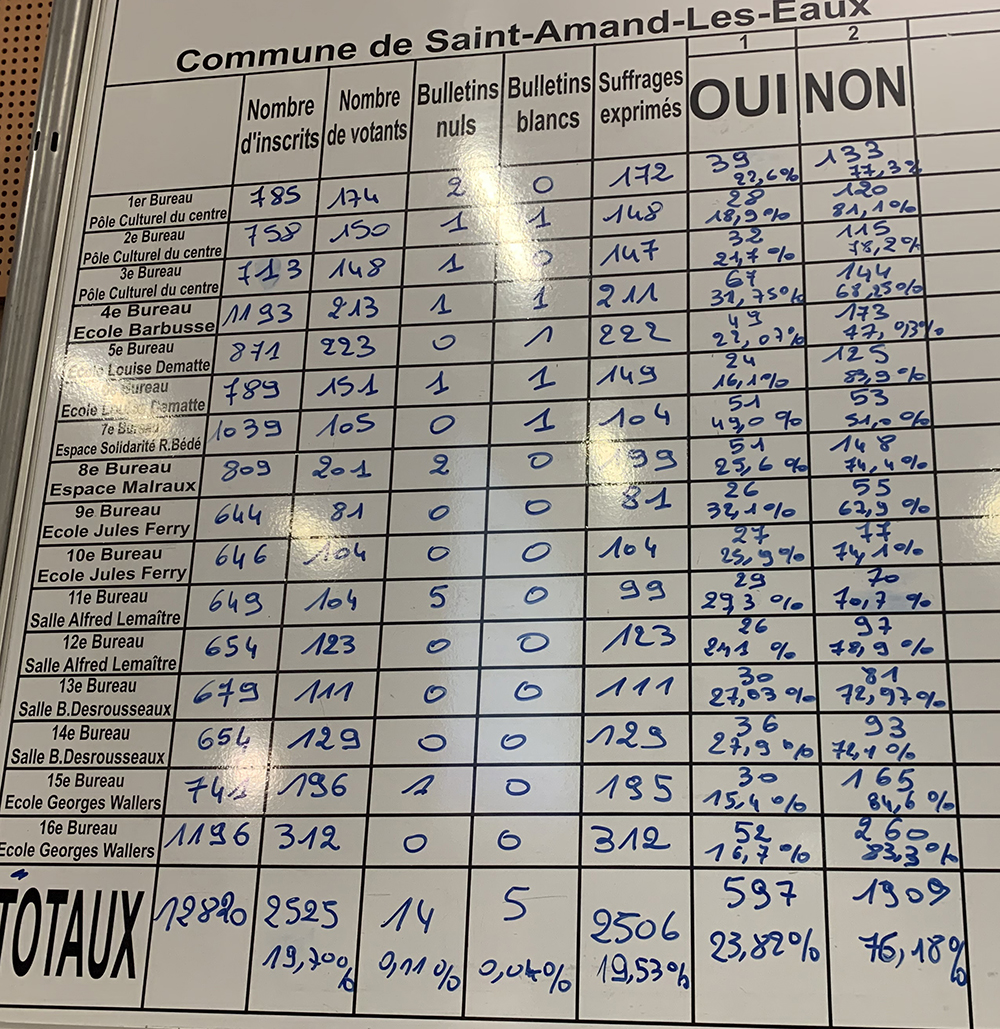 Commune de Saint-Amand-Les-Eaux
1 2
Nombre d'inscrits Nombre de votants Bulletins nuls Bulletins blancs Suffrages exprimés OUI NON
1er Bureau 785 174 2 0 172 39 133
Pôle Culturel du centre 22,6% 77,3%
2e Bureau 758 150 1 1 148 28 120
Pôle Culturel du centre 18,9% 81,1%
3e Bureau 713 148 1 0 147 32 115
Pôle Culturel du centre 21,7% 78,2%
4e Bureau 1193 213 1 1 211 67 144
Ecole Barbusse 31,75% 68,25%
5e Bureau 871 223 0 1 222 49 173
Ecole Louise Dematte 22,07% 77,03%
Bureau 789 151 1 1 149 24 125
Ecole Dematte 16,1% 83,9%
7e Bureau 1039 105 0 1 104 51 53
Espace Solidarité R.Bédé 49,0 % 51,0 %
8e Bureau 809 201 2 0 199 51 148
Espace Malraux 25,6 % 74,4%
9e Bureau 644 81 0 0 81 26 55
Ecole Jules Ferry 32,1% 67,9 %
10e Bureau 646 104 0 0 104 27 77
Ecole Jules Ferry 25,9% 74,1%
11e Bureau 649 104 5 0 99 29 70
Salle Alfred Lemaître 29,3 % 70,7 %
12e Bureau 654 123 0 0 123 26 97
Salle Alfred Lemaître 21,1 % 78,9 %
13e Bureau 679 111 0 0 111 30 81
Salle B.Desrousseaux 27,03 % 72,97%
14e Bureau 654 129 0 0 129 36 93
Salle B.Desrousseaux 27,9 % 72,1 %
15e Bureau 741 196 1 0 195 30 165
Ecole Georges Wallers 15,4 % 84,6 %
16e Bureau 1196 312 0 0 312 52 260
Ecole Georges Wallers 16,7 % 83,3%
TOTAUX 12820 2525 14 5 2506 597 1909
19,70% 0,11% 0,04% 19,53% 23,82% 76,18%